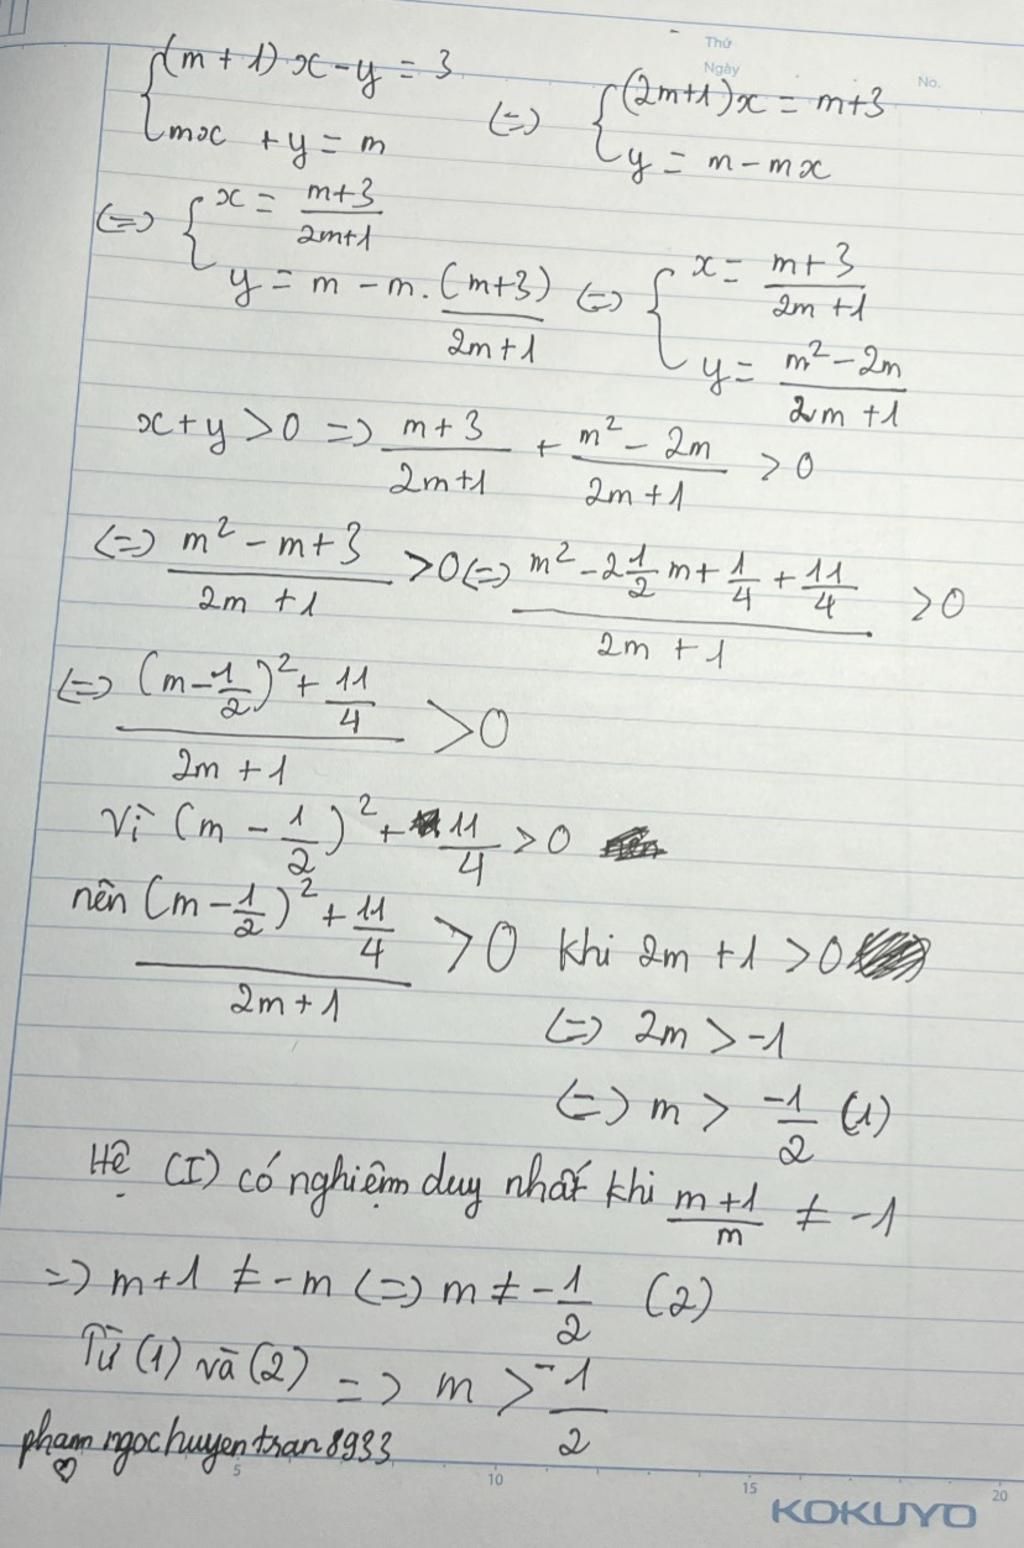 Thứ
Ngày
No.
{(m+1)x - y = 3
{mx + y = m
(=) {(2m+1)x = m+3
{y = m - mx
(=) {x = \frac{m+3}{2m+1}
{y = m - m.\frac{(m+3)}{2m+1}
(=) {x = \frac{m+3}{2m+1}
{y = \frac{m² - 2m}{2m+1}
x+y > 0 => \frac{m+3}{2m+1} + \frac{m² - 2m}{2m+1} > 0
(=) \frac{m² - m + 3}{2m+1} > 0 (=) \frac{m² - 2\frac{1}{2}m + \frac{1}{4} + \frac{11}{4}}{2m+1} > 0
(=) \frac{(m - \frac{1}{2})² + \frac{11}{4}}{2m+1} > 0
Vì (m - \frac{1}{2})² + \frac{11}{4} > 0
nên \frac{(m - \frac{1}{2})² + \frac{11}{4}}{2m+1} > 0 khi 2m+1 > 0
(=) 2m > -1
(=) m > \frac{-1}{2} (1)
Hệ (I) có nghiệm duy nhất khi \frac{m+1}{m} ≠ -1
=> m+1 ≠ -m (=) m ≠ -\frac{1}{2} (2)
Từ (1) và (2) => m > \frac{-1}{2}
phamngochuyentran8933
5 10 15 20
KOKUYO